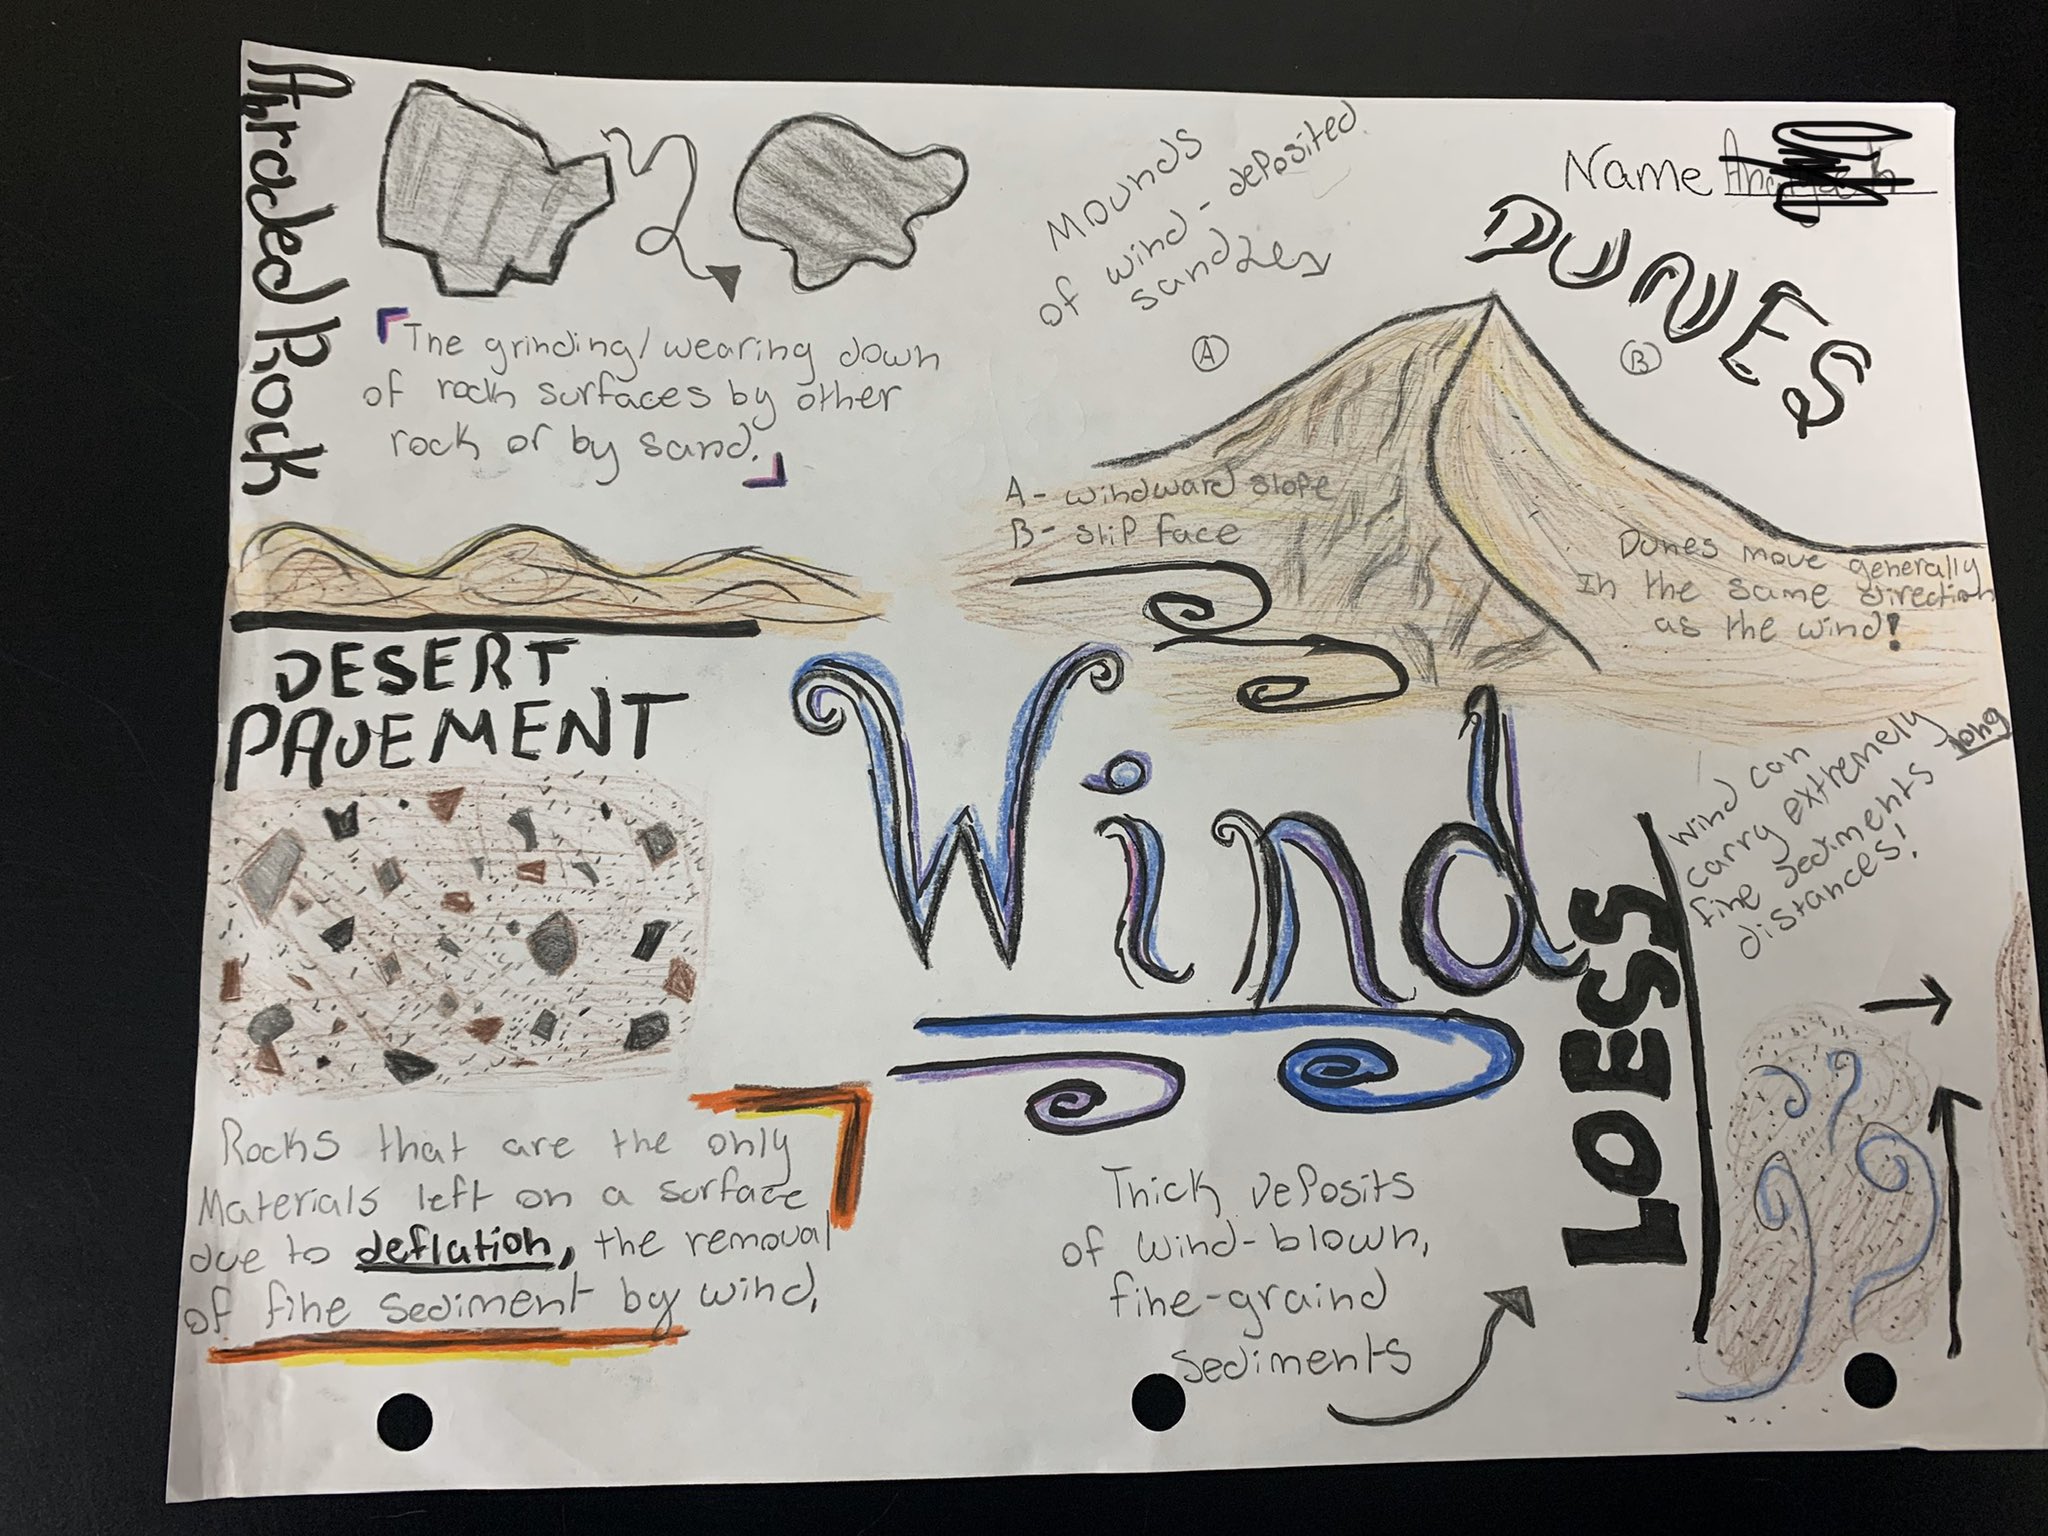 Abraded Rock
The grinding/wearing down
of rock surfaces by other
rock or by sand.
Mounds
of wind-deposited
sand
Name
DUNES
A
B
A- windward slope
B- slip face
Dunes move generally
In the same direction
as the wind!
DESERT
PAVEMENT
Rocks that are the only
Materials left on a surface
due to deflation, the removal
of fine sediment by wind.
Wind
LOESS
Wind can
carry extremely
fine sediments long
distances!
Thick deposits
of wind-blown,
fine-graind
sediments